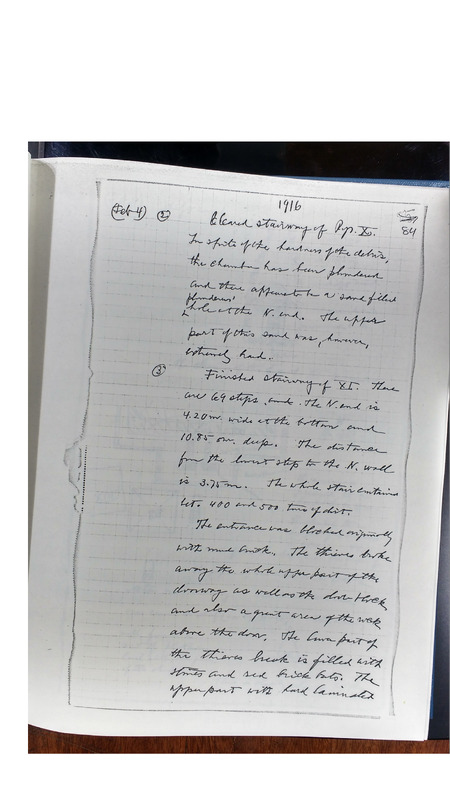 1916
(Feb 4) (2)
84
Cleared stairway of Pyr. XI.
In spite of the hardness of the debris,
the chamber has been plundered
and there appears to be a sand filled
plunderers'
hole at the N. end. The upper
part of this sand was, however,
extremely hard.
(3) Finished stairway of XI. There
are 69 steps and. The N. end is
4.20 m. wide at the bottom and
10.85 m. deep. The distance
from the lowest step to the N. wall
is 3.75 m. The whole stair contained
bet. 400 and 500 tons of dirt.
The entrance was blocked originally
with mud brick. The thieves broke
away the whole upper part of the
doorway as well as the door block
and also a great area of the rock
above the door. The lower part of
the thieves break is filled with
stones and red brick bats. The
upper part with hard laminated